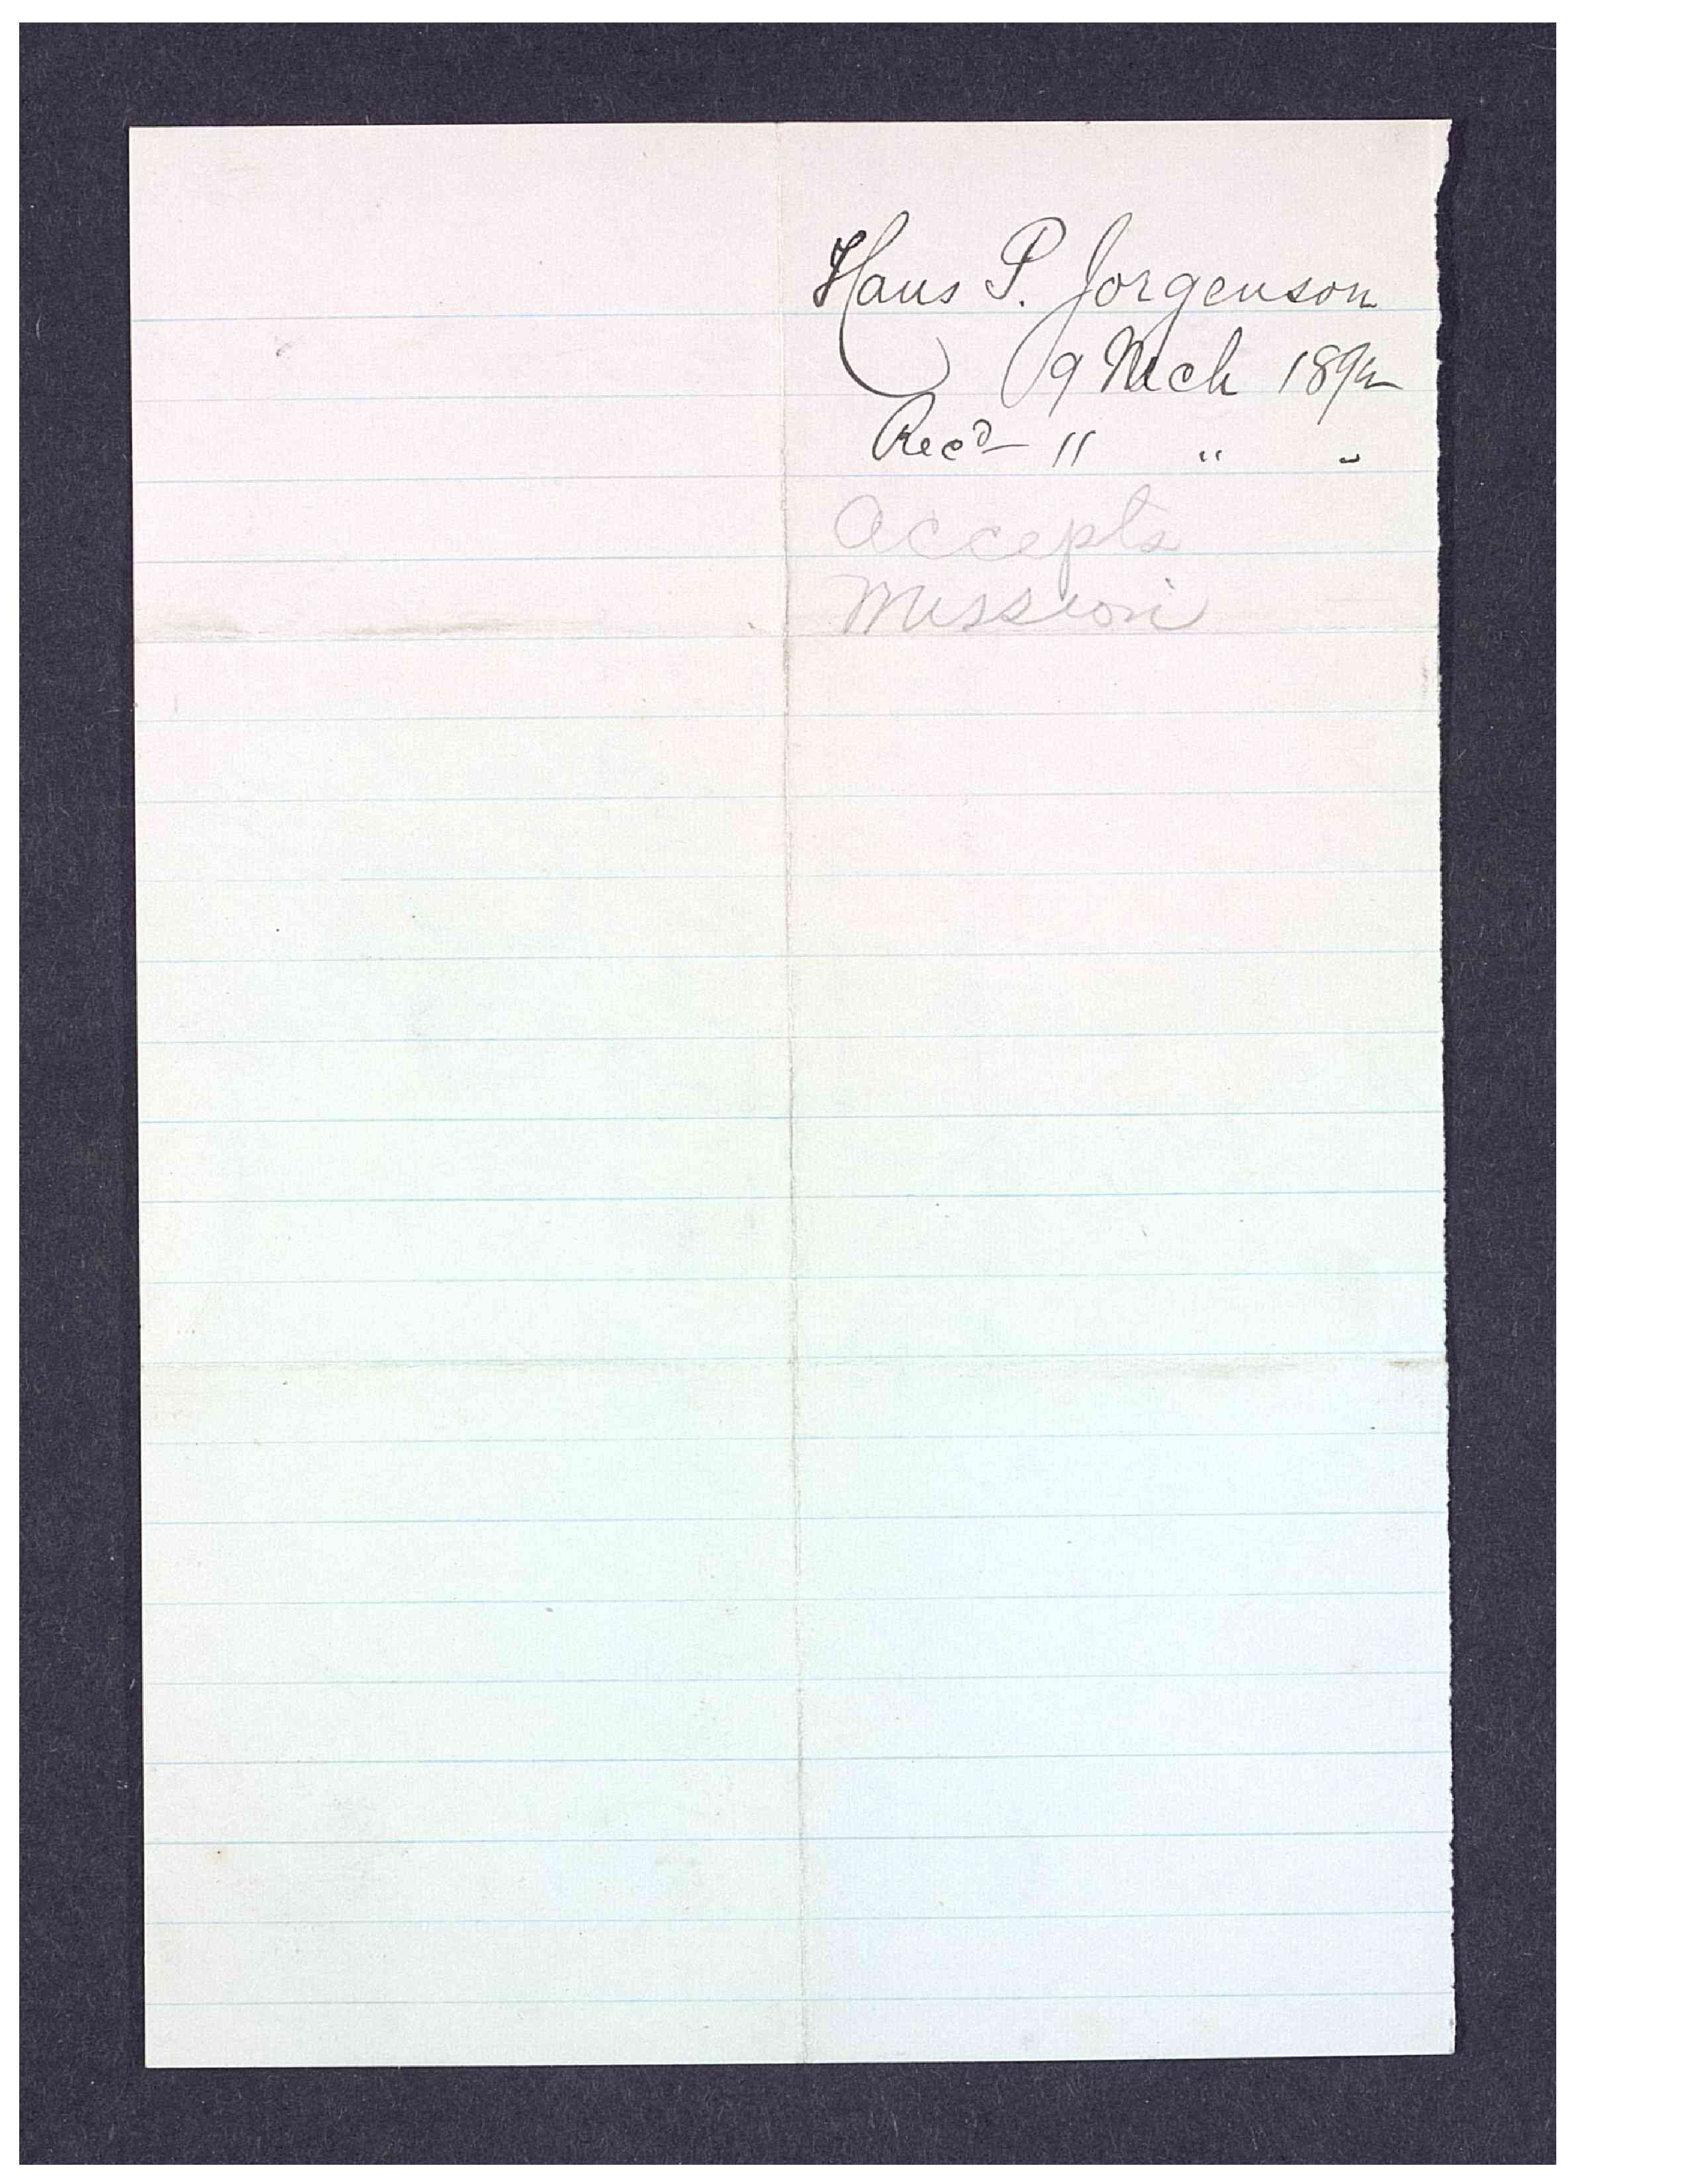 Hans P. Jorgenson
9 Mch 189
Rec'd 11 " "
Accepts
Mission